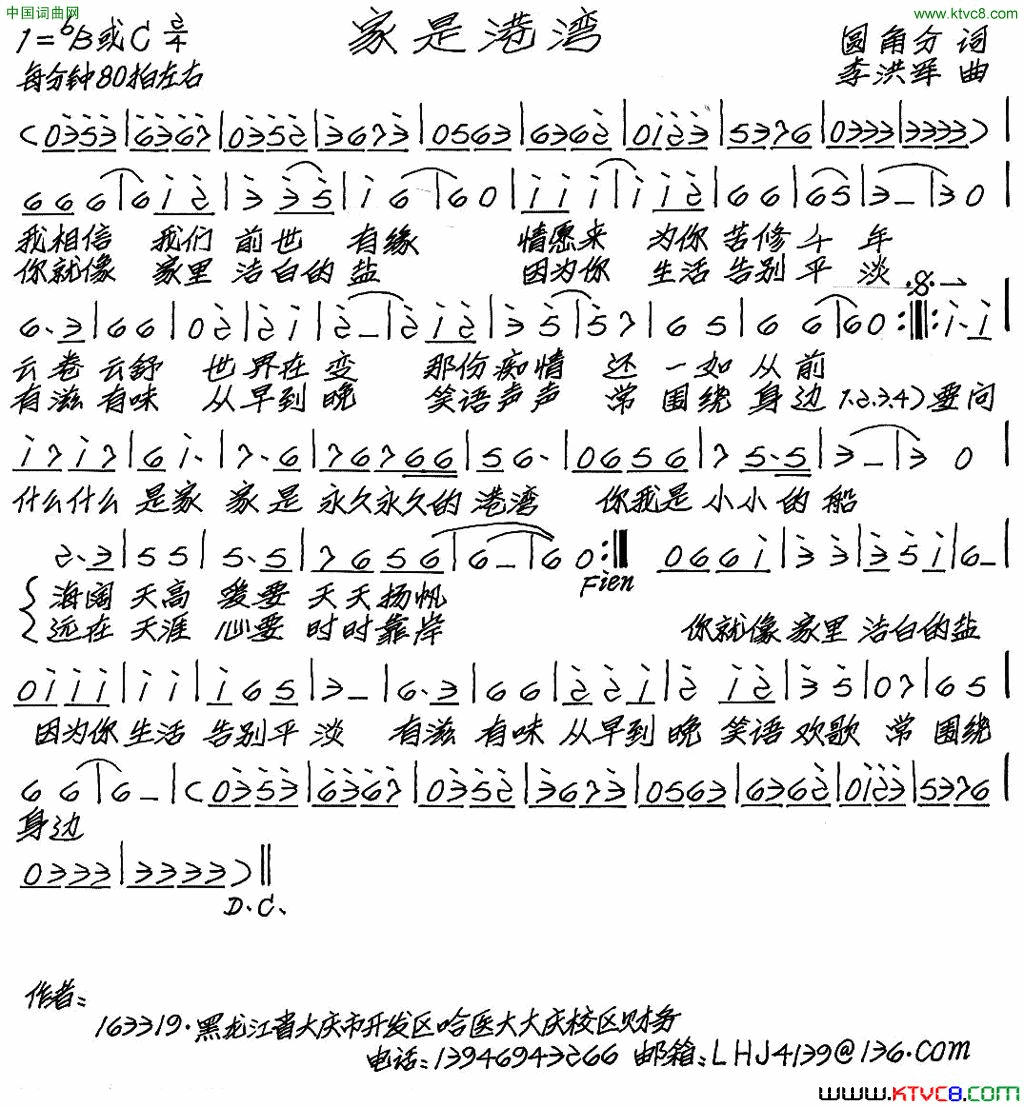 中国词曲网
www.ktvc8.com
1=♭B或C 2/4
家是港湾
圆角分 词
每分钟80拍左右
李洪军 曲
(0353|6367|0352|3673|0563|6362|0123|5376|0333|3333)|
666|612|335|16|60|111|112|66|65|3–|30|
我相信 我们 前世 有缘 情愿来 为你 苦修 千 年
你就像 家里 洁白的 盐 因为你 生活 告别 平 淡
6.3|66|02|21|2–|212|35|57|65|66|60:‖:1.1|
云卷 云舒 世界在 变 那份痴情 还 一如 从 前
有滋 有味 从早到 晚 笑语声声 常 围绕 身 边 1.2.3.4)要问
1717|61.|7.6|76766|56.|0656|75.5|3–|3 0|
什么什么 是家 家是 永久永久的 港湾 你我是 小小的 船
2.3|55|5.5|7656|6–|60:‖ 0661|33|351|6–|
Fien
海阔 天高 爱要 天天扬帆
远在 天涯 心要 时时靠岸 你就像 家里 洁白的 盐
0111|11|165|3–|6.3|66|221|2 12|35|07|65|
因为你 生活 告别平 淡 有滋 有味 从早到 晚 笑语 欢歌 常 围绕
66|6–|(0353|6367|0352|3673|0563|6362|0123|5376|
身边
0333|3333)‖
D.C.
作者:
163319.黑龙江省大庆市开发区哈医大大庆校区财务
电话:13946943266 邮箱:LHJ4139@136.com
www.KTVC8.COM